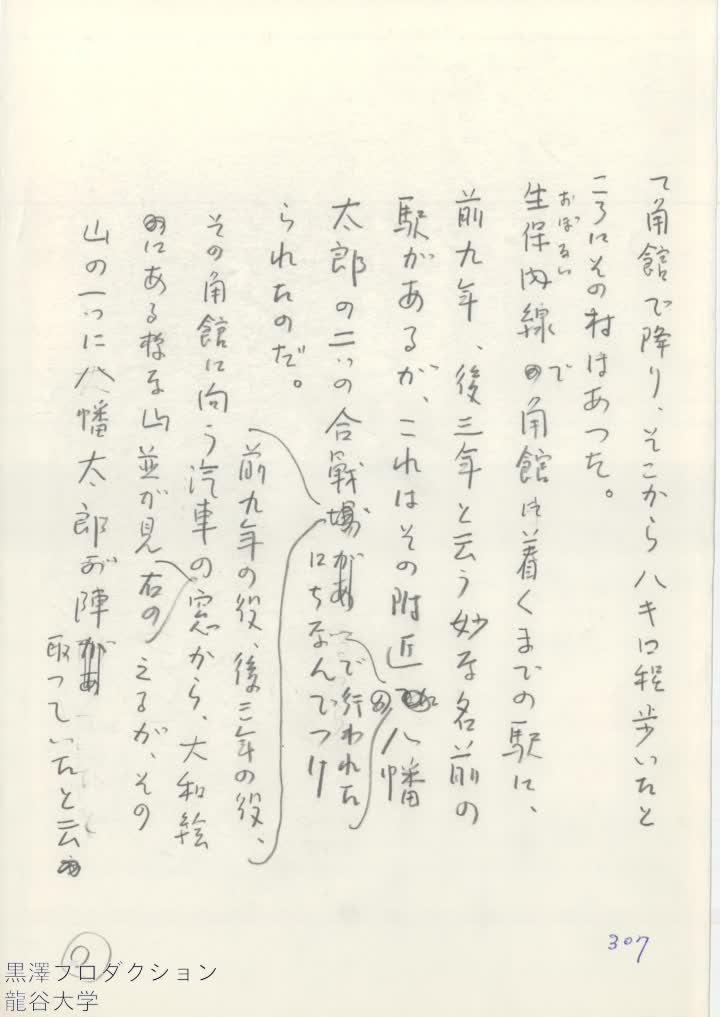 て角館で降り、そこから八キロ程歩いたと
ころにその村はあつた。
おぼない
生保内線で角館に着くまでの駅に、
前九年、後三年と云う妙な名前の
駅があるが、これはその附近の八幡
で行われた
太郎の二つの合戦
にちなんでつけ
られたのだ。
前九年の役、後三年の役、
その角館に向う汽車の窓から、大和絵
右の
にある様な山並が見えるが、その
山の一つに八幡太郎が陣
取つていたと云
307
2
黒澤プロダクション
龍谷大学